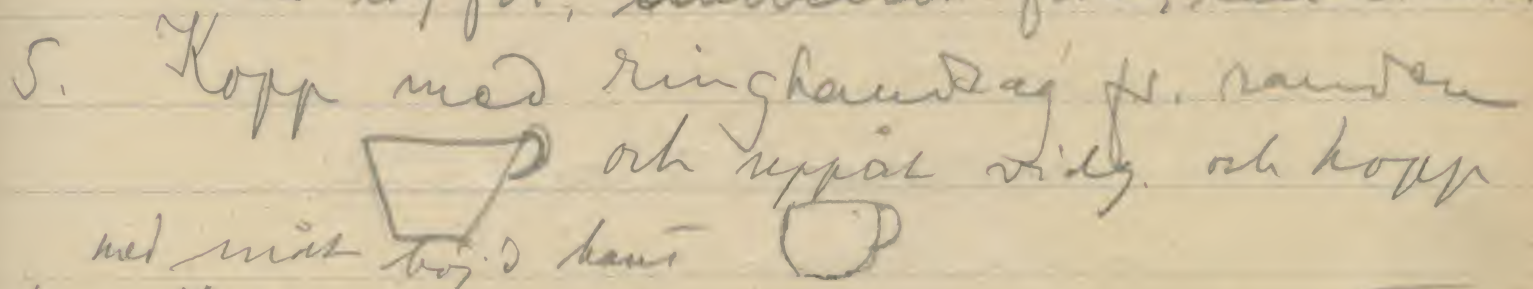 5. Kopp med ringhandtag fr. randen
och uppåt vidg. och kopp
med inåt böjd kant